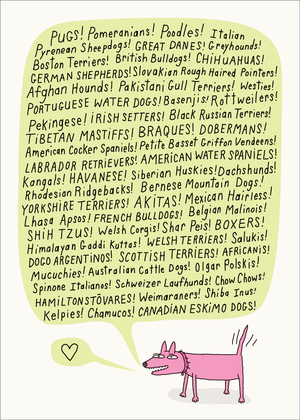 PUGS! Pomeranians! Poodles! Italian
Pyrenean Sheepdogs! GREAT DANES! Greyhounds!
Boston Terriers! British Bulldogs! CHIHUAHUAS!
GERMAN SHEPHERDS! Slovakian Rough Haired Pointers!
Afghan Hounds! Pakistani Gull Terriers! Westies!
PORTUGUESE WATER DOGS! Basenjis! Rottweilers!
Pekingese! IRISH SETTERS! Black Russian Terriers!
TIBETAN MASTIFFS! BRAQUES! DOBERMANS!
American Cocker Spaniels! Petite Basset Griffon Vendeens!
LABRADOR RETRIEVERS! AMERICAN WATER SPANIELS!
Kangals! HAVANESE! Siberian Huskies! Dachshunds!
Rhodesian Ridgebacks! Bernese Mountain Dogs!
YORKSHIRE TERRIERS! AKITAS! Mexican Hairless!
Lhasa Apsos! FRENCH BULLDOGS! Belgian Malinois!
SHIH TZUS! Welsh Corgis! Shar Peis! BOXERS!
Himalayan Gaddi Kuttas! WELSH TERRIERS! Salukis!
DOGO ARGENTINOS! SCOTTISH TERRIERS! AFRICANIS!
Mucuchies! Australian Cattle Dogs! Olgar Polskis!
Spinone Italianos! Schweizer Laufhunds! Chow Chows!
HAMILTONSTÖVARES! Weimaraners! Shiba Inus!
Kelpies! Chamucos! CANADIAN ESKIMO DOGS!